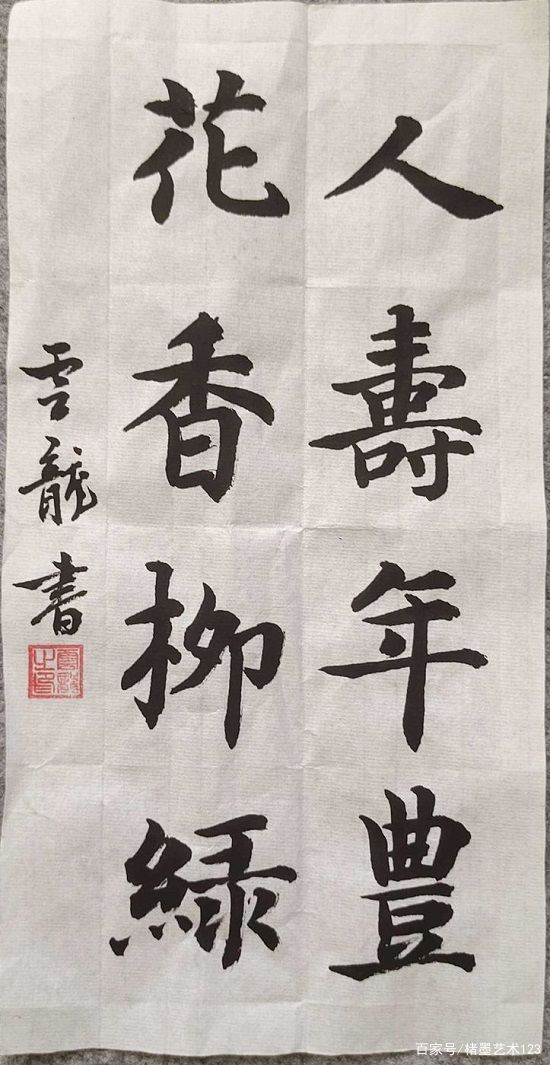 人壽年豐
花香柳綠
雲龍書
百家号/楮墨艺术123